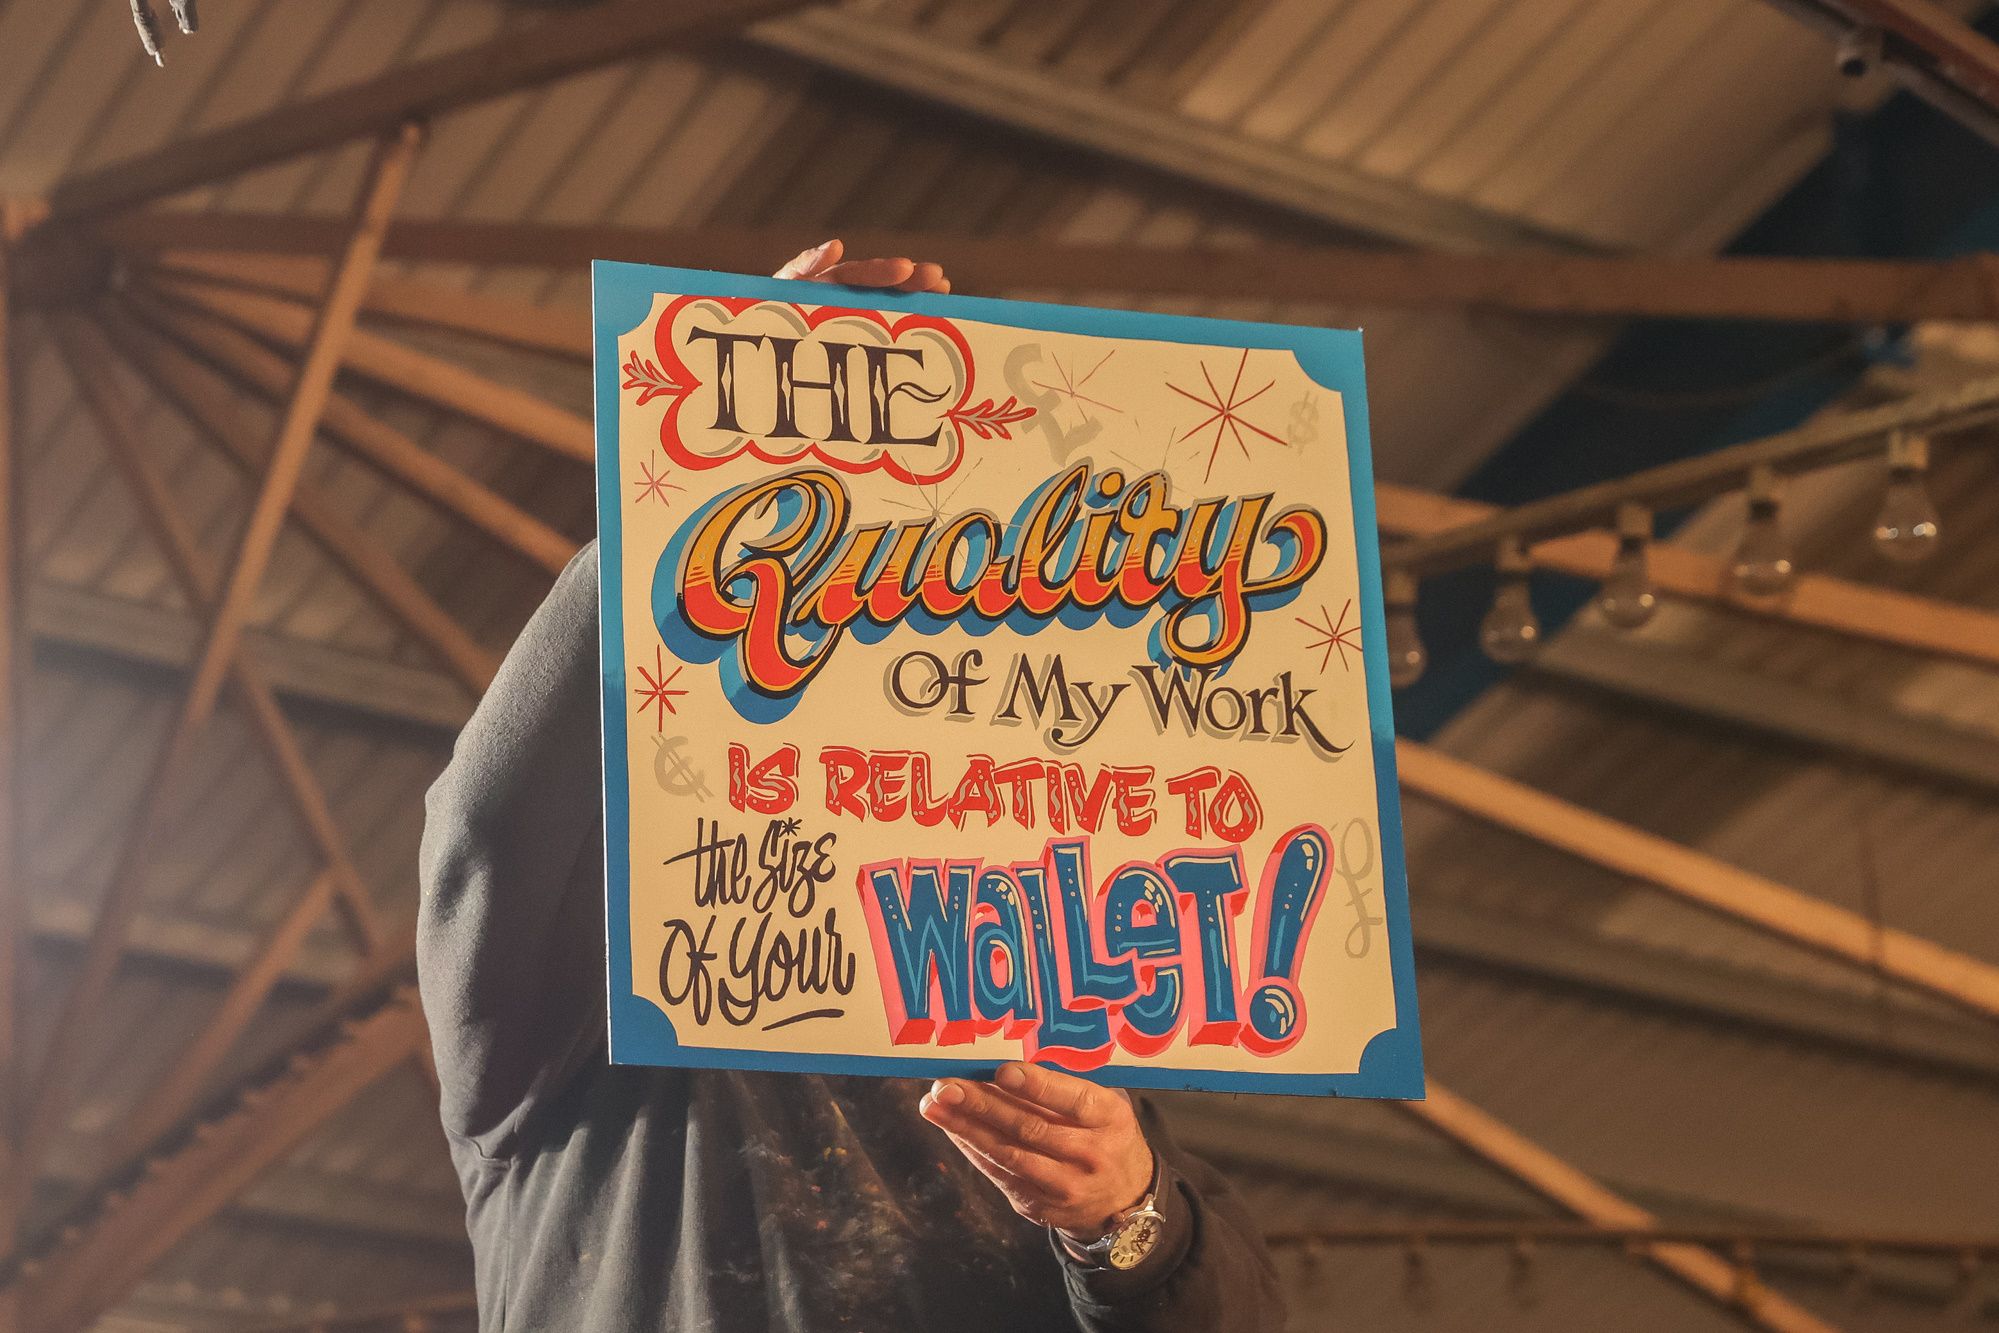 THE
Quality
Of My Work
IS RELATIVE TO
the Size
Of Your
WaLLeT!